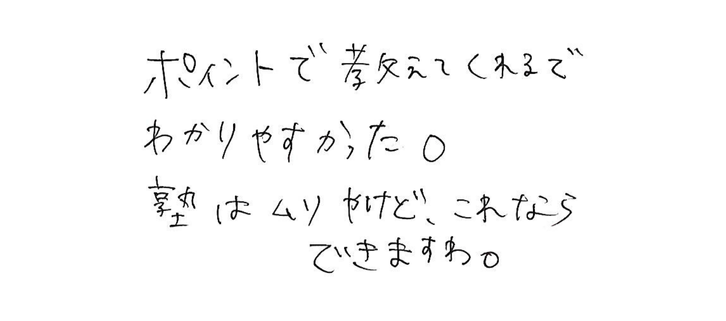 ポイントで教えてくれるで
わかりやすかった。
塾はムリやけど、これなら
できますわ。